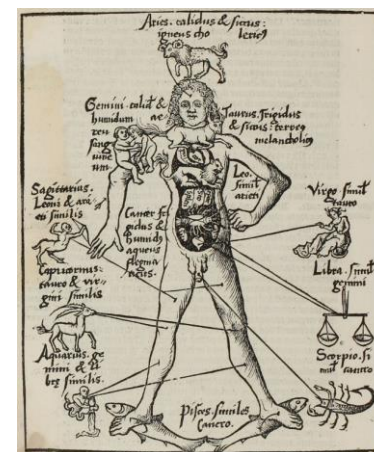 Aries. calidus & siccus:
igneus cho lericꝰ
Gemini. calid & hu
humidum ae
reu
sang
uine
um
Taurus. frigidus
& siccus: terreꝰ
melancholicꝰ
Leo.
simil
arieti
Sagittarius.
Leoni & ari
eti similis
Cancer fri
gidus &
humidꝰ
aqueus
flegma
ticus.
Virgo. simil
tauro
Capricornus.
tauro & vir
gini similis
Libra. simil
gemini
Aquarius. ge
mini & li
bre similis.
Scorpio. si
mil cancro
Pisces. similes
Cancro.